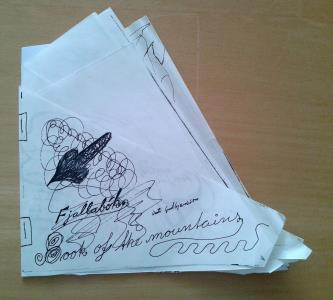 Fjallabókin
Book of the mountains